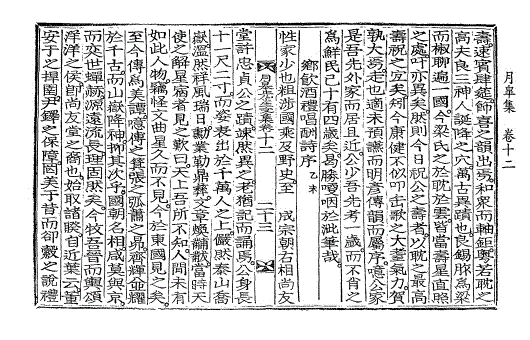 月皐集 卷十二
壽速賓肆筵飾喜之韻出焉和衆而軸鉅矣若耽之
高夫良三神人誕降之穴萬古異蹟也良錫胙爲梁
而椒聊遍一國今梁氏之於耽於雲皆當壽星直照
之處吁亦異矣然則今日祝公之壽者以耽之最高
壽祝之宜矣矧今康健不似叩缶歌之大耋氣力賀
孰大焉走也適未預讌而明彥傳韻而屬序噫公家
是吾先外家而居且近公少吾先考一歲而不肖之
爲鮮民已十有四歲矣曷勝哽咽於泚筆哉
鄉飮酒禮唱酬詩序 乙未
性家少也粗涉國乘及野史至 成宗朝右相尚友
月皐先生文集卷十二 二十三
堂許忠貞公之蹟竦然異之老猶記而誦焉公身長
十一尺二寸而姿表出於千萬人之上儼然泰山喬
嶽溫然祥風瑞日勳業勒鼎彝文章煥黼黻當時天
使之解星宿者見之歎曰天上吾所不知人間未有
如此人物竊怪文曲星久而不見今於東國見之矣
至今傳爲美譚噫傅之箕張之弧蕭之昴齊輝並耀
於千古而山嶽降神抑其次乎國朝名相咸莫與京
而奕世蟬赫源遠流長理固然矣今牧吾晉而輿頌
洋洋之侯卽尚友堂之裔也始取諸睽自近葉云董
安于之捍圉尹鐸之保障固美於昔而卻縠之說禮